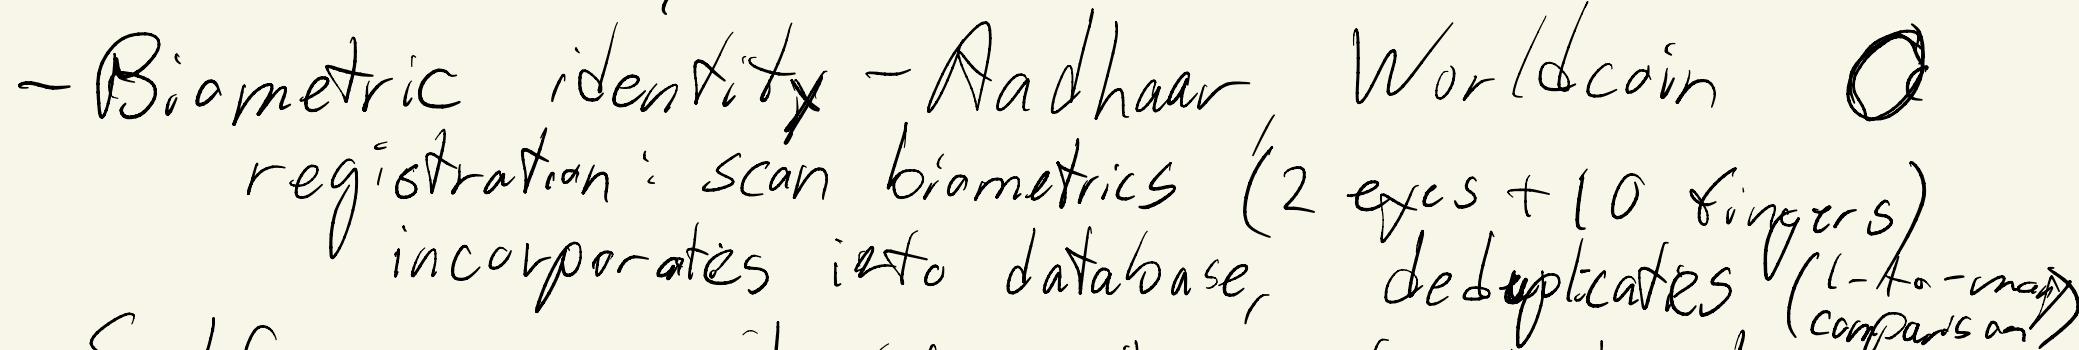 - Biometric identity - Aadhaar, Worldcoin O
registration: scan biometrics (2 eyes + 10 fingers)
incorporates into database, deduplicates (1-to-many
comparison)